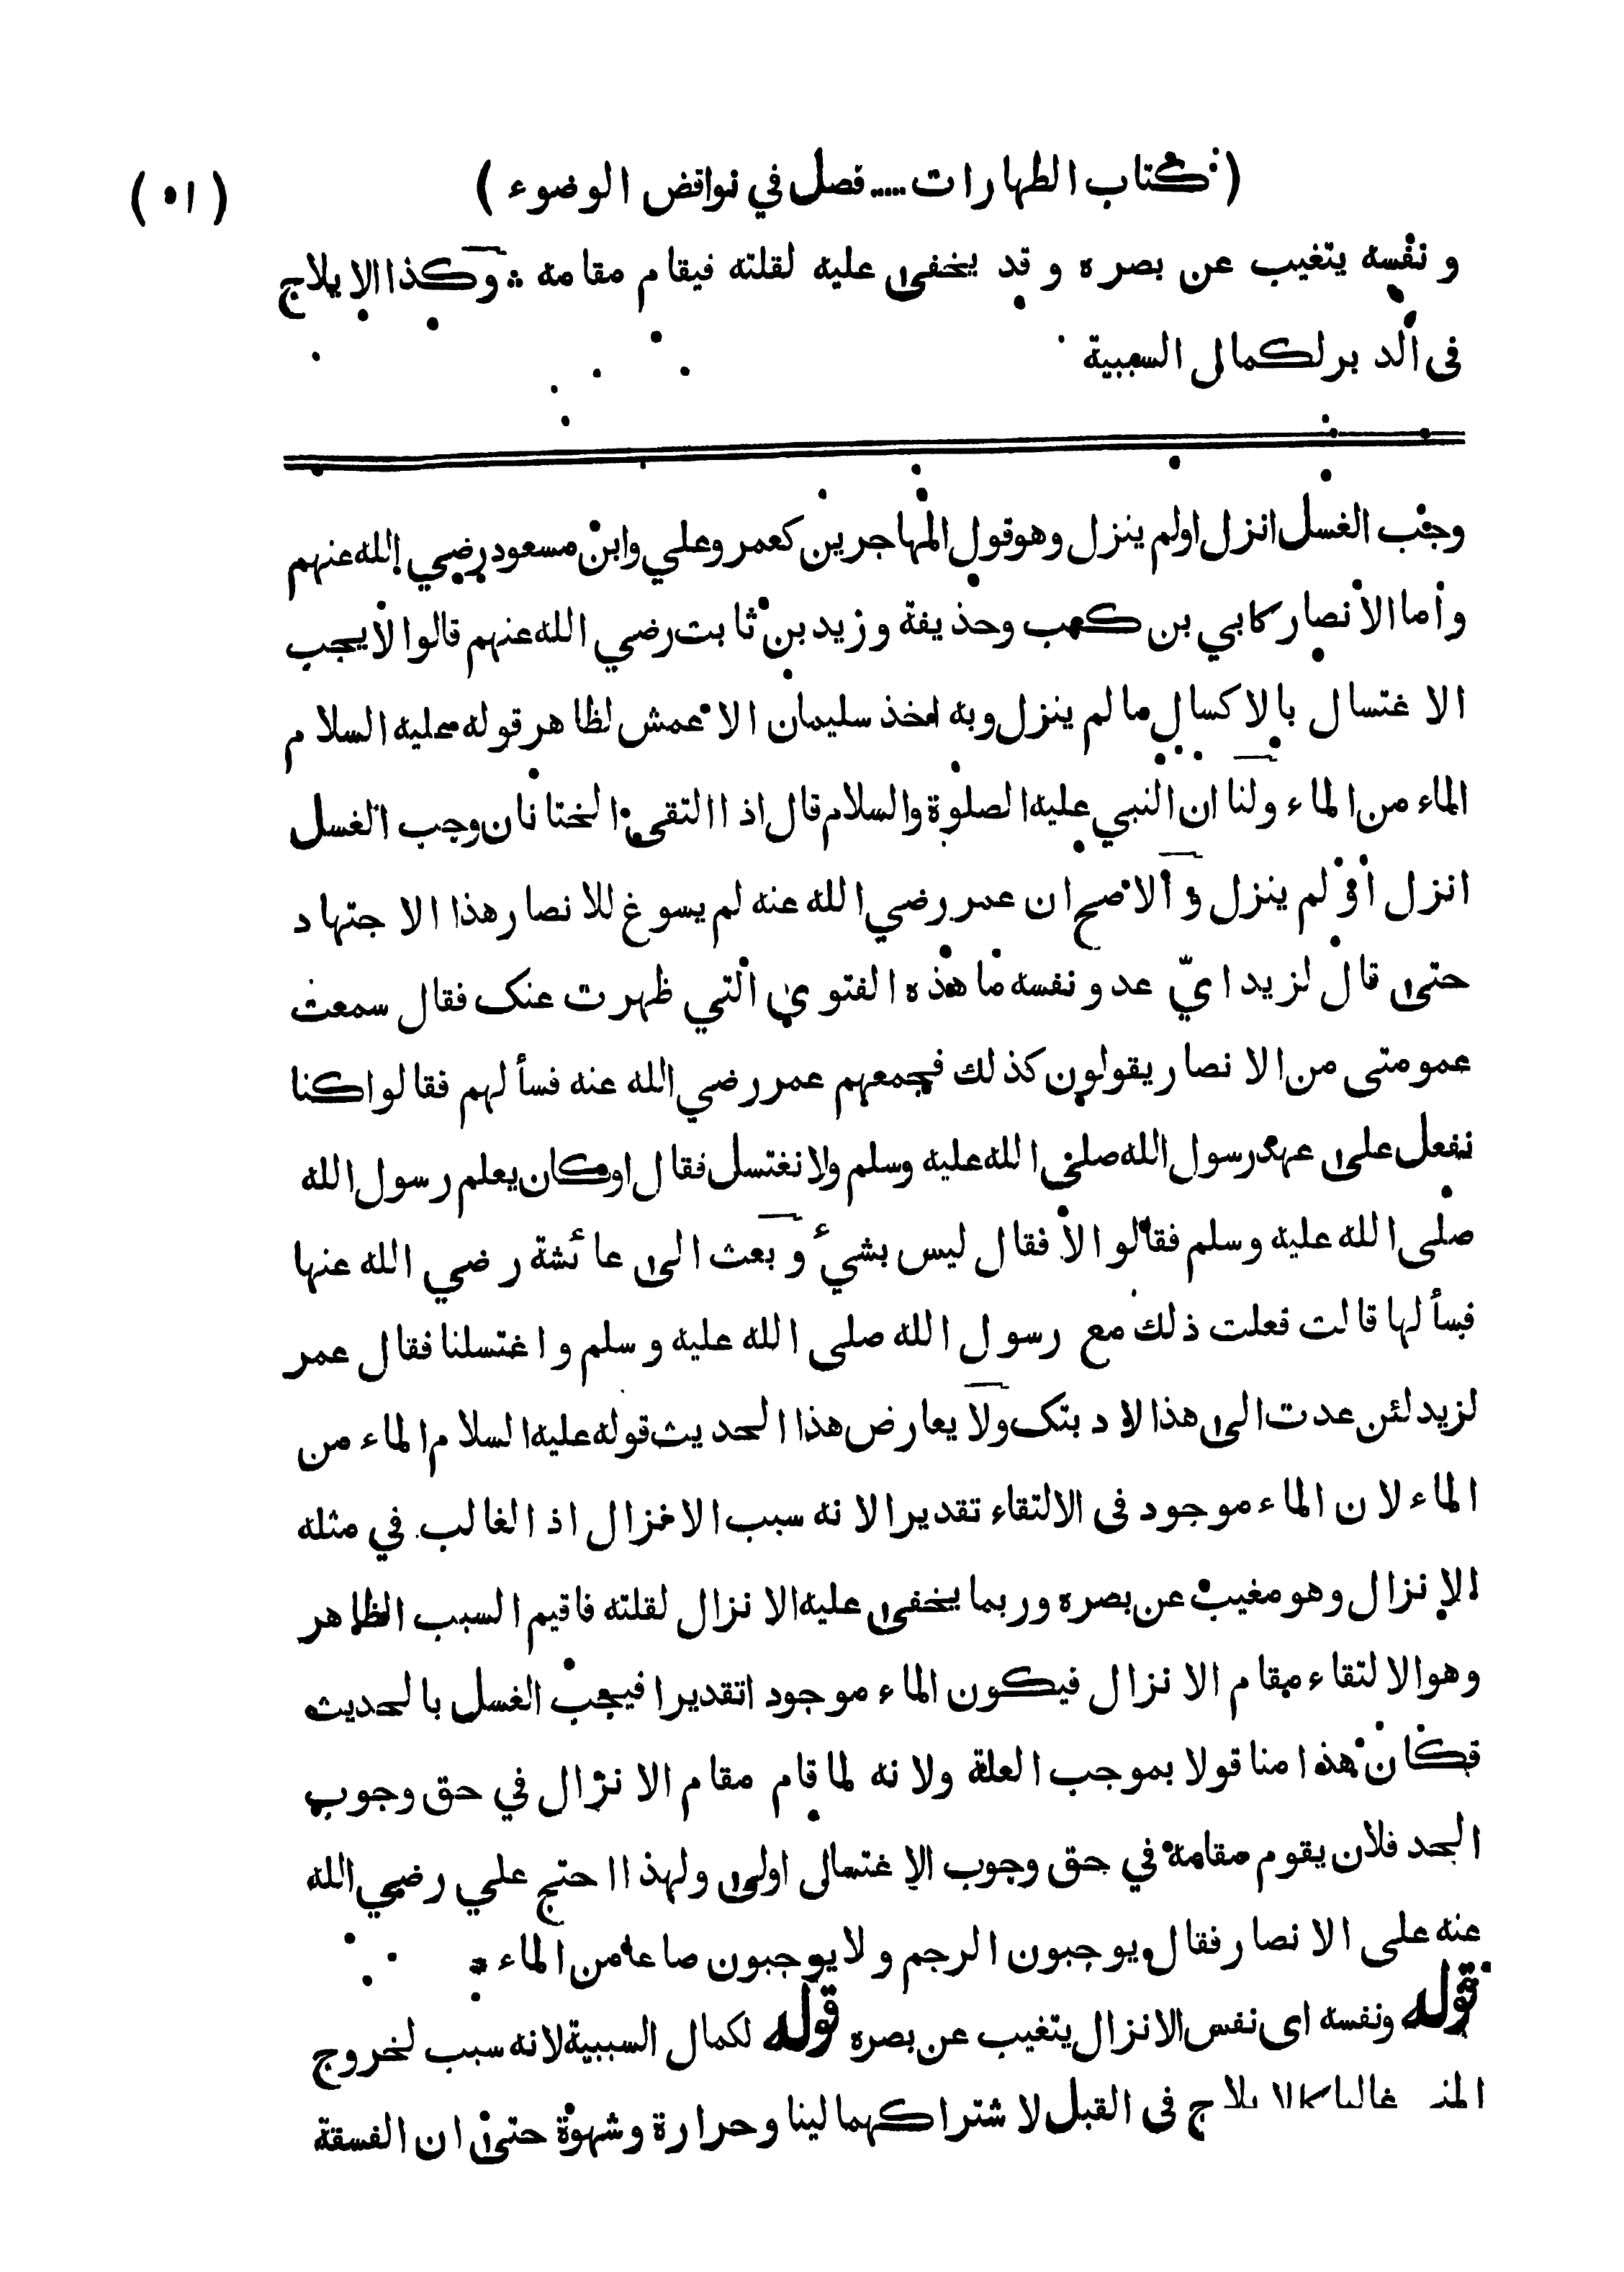 ( كتاب الطهارات ..... فصل في نواقض الوضوء ) ( ٥١ )
و نفسه يتغيب عن بصره و قد يخفى عليه لقلته فيقام مقامه ❊ وكذا الايلاج
فى الدبر لكمال السببية
وجب الغسل انزل اولم ينزل وهو قول المهاجرين كعمر وعلي وابن مسعود رضي الله عنهم
وأما الانصار كابي بن كعب وحذيفة وزيد بن ثابت رضي الله عنهم قالوا لا يجب
الاغتسال بالاكسال ما لم ينزل وبه اخذ سليمان الاعمش لظاهر قوله عليه السلام
الماء من الماء ولنا ان النبي عليه الصلوة والسلام قال اذا التقى الختانان وجب الغسل
انزل أو لم ينزل و الاصح ان عمر رضي الله عنه لم يسوغ للانصار هذا الاجتهاد
حتى قال لزيد ايّ عدو نفسه ما هذه الفتوى التي ظهرت عنك فقال سمعت
عمومتى من الانصار يقولون كذلك فجمعهم عمر رضي الله عنه فسألهم فقالوا كنا
نفعل على عهد رسول الله صلى الله عليه وسلم ولا نغتسل فقال اوكان يعلم رسول الله
صلى الله عليه وسلم فقالوا لا فقال ليس بشيء و بعث الى عائشة رضي الله عنها
فسألها قالت فعلت ذلك مع رسول الله صلى الله عليه وسلم واغتسلنا فقال عمر
لزيد لئن عدت الى هذا لادبتك ولا يعارض هذا الحديث قوله عليه السلام الماء من
الماء لان الماء موجود فى الالتقاء تقديرا لانه سبب الانزال اذ الغالب في مثله
الانزال وهو مغيب عن بصره وربما يخفى عليه الانزال لقلته فاقيم السبب الظاهر
وهو الالتقاء مقام الانزال فيكون الماء موجودا تقديرا فيجب الغسل بالحديث
فكان هذا منا قولا بموجب العلة ولانه لما قام مقام الانزال في حق وجوب
الحد فلان يقوم مقامه في حق وجوب الاغتسال اولى ولهذا احتج علي رضي الله
عنه على الانصار فقال يوجبون الرجم ولا يوجبون صاعا من الماء ❊
قوله ونفسه اى نفس الانزال يتغيب عن بصره قوله لكمال السببية لانه سبب لخروج
المني غالبا كالايلاج فى القبل لاشتراكهما لينا وحرارة وشهوة حتى ان الفسقة